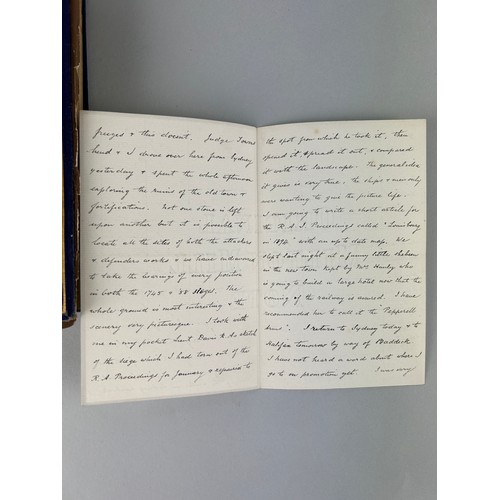 freezes & this doesn't. Judge Towns
hend & I drove over here from Sydney
yesterday & spent the whole afternoon
exploring the ruins of the old town &
fortifications. Not one stone is left
upon another but it is possible to
locate all the sites of both the attackers
& defenders works & we have endeavored
to take the bearings of every position
in both the 1745 & 58 sieges. The
whole ground is most interesting & the
scenery very picturesque. I took with
me in my pocket Lieut Davis R.A. sketch
of the siege which I had torn out of the
R.A. Proceedings for January & repaired to
the spot from which he took it, then
opened it, spread it out, & compared
it with the landscape. The general idea
it gives is very true. The ships & men only
were wanting to give the picture life.
I am going to write a short article for
the R.A.I. Proceedings called "Louisburg
in 1894" with an up to date map. We
slept last night at a funny little shebeen
in the new town kept by Mrs who
is going to build a large hotel now that the
coming of the railway is assured. I have
recommended her to call it the "Pepperell
Arms". I return to Sydney today & to
Halifax tomorrow by way of Baddeck
I have not heard a word about where I
go to on promotion yet I was very